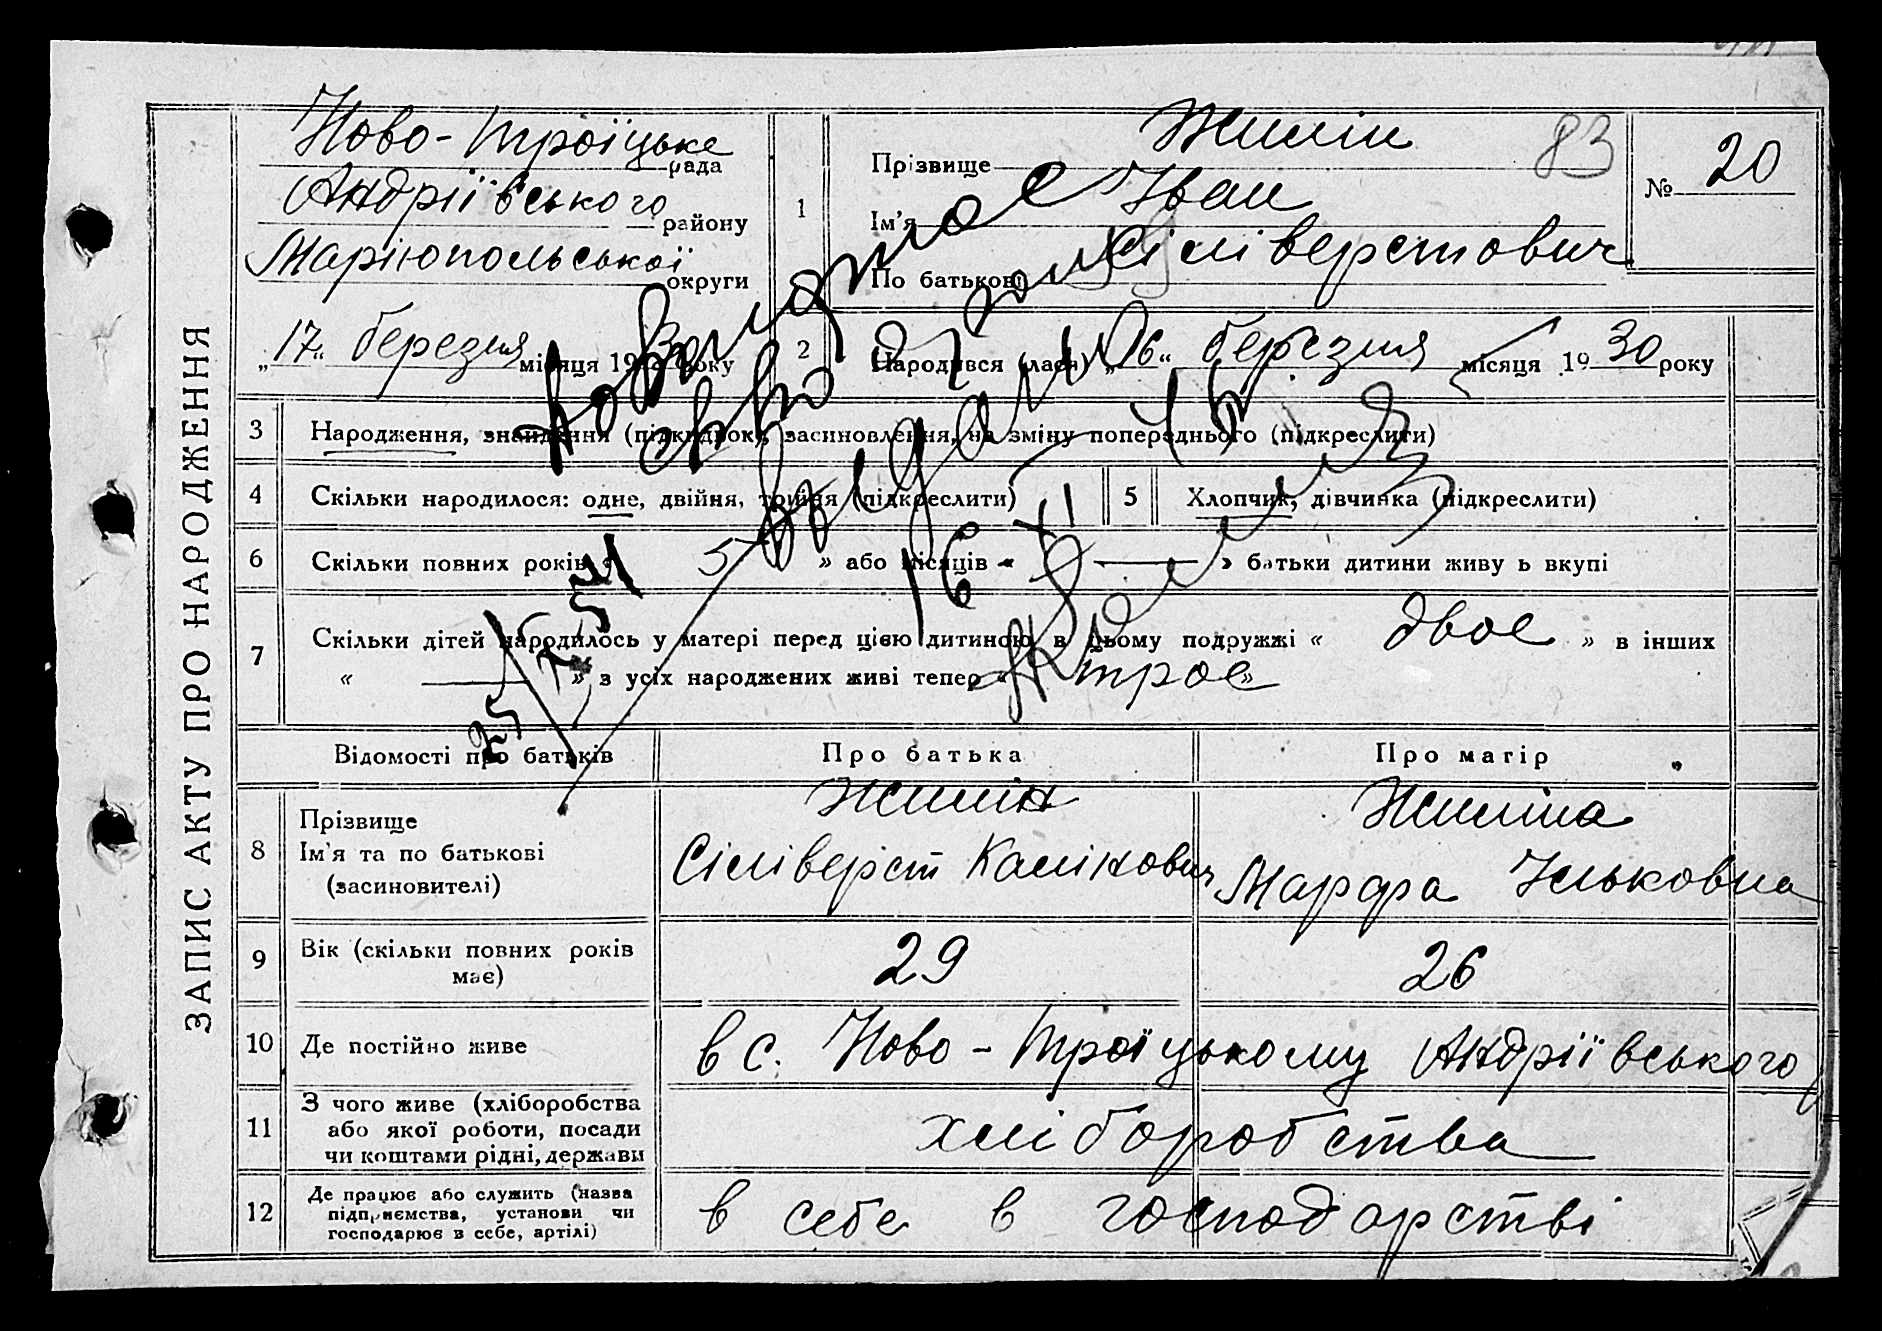 ЗАПИС АКТУ ПРО НАРОДЖЕННЯ
Ново-Троїцьке рада
Андріївського району
Маріюпольської округи
„17“ березня місяця 19 року
1
Прізвище Жилін
Ім'я Іван
По батькові Сіліверстович
83
№ 20
2 Народився (лася) „06“ березня місяця 1930 року
3 Народження, знайдення (підкидьок), засиновлення, на зміну попереднього (підкреслити)
4 Скільки народилося: одне, двійня, трійня (підкреслити)
5 Хлопчик, дівчинка (підкреслити)
6 Скільки повних років « 5 » або місяців « — » батьки дитини живуть вкупі
7 Скільки дітей народилось у матері перед цією дитиною в цьому подружжі « двое » в інших
« — » з усіх народжених живі тепер « трое »
Повторное
св-во о рожд
выдано
16 XI
Відомості про батьків
Про батька
Про матір
8 Прізвище
Ім'я та по батькові
(засиновителі)
Жилін
Сіліверст Калінович
Жиліна
Марфа Ільковна
9 Вік (скільки повних років
має)
29
26
10 Де постійно живе
в с. Ново-Троїцькому Андріївського
11 З чого живе (хліборобства
або якої роботи, посади
чи коштами рідні, держави
хліборобства
12 Де працює або служить (назва
підприємства, установи чи
господарює в себе, артілі)
в себе в господарстві